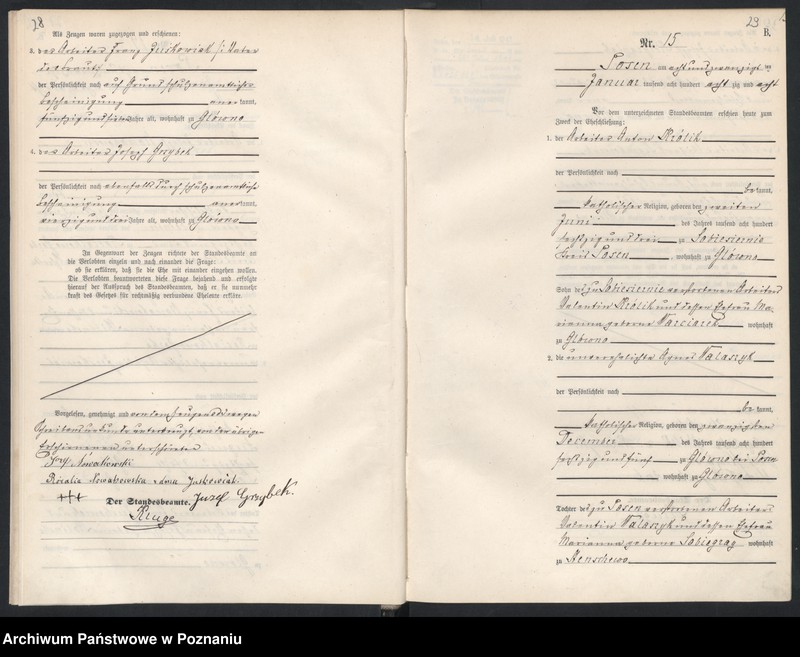 28
Als Zeugen waren zugezogen und erschienen:
3. der Arbeiter Franz Juskowiak, Vater
der Braut
der Persönlichkeit nach auf Grund schulzenamtlicher
Bescheinigung anerkannt,
Jahre alt, wohnhaft zu Glowno
4. der Arbeiter Joseph Grzybek
der Persönlichkeit nach ebenfalls durch schulzenamtliche
Bescheinigung anerkannt,
vierzig und drei Jahre alt, wohnhaft zu Glowno
In Gegenwart der Zeugen richtete der Standesbeamte an
die Verlobten einzeln und nach einander die Frage:
ob sie erklären, daß sie die Ehe mit einander eingehen wollen.
Die Verlobten beantworteten diese Frage bejahend und erfolgte
hierauf der Ausspruch des Standesbeamten, daß er sie nunmehr
kraft des Gesetzes für rechtmäßig verbundene Eheleute erkläre.
Vorgelesen, genehmigt und von dem Zeugen
Schreibens unkundig unterkreuzt, von den übrigen
Erschienenen unterschrieben
Józef Nowakowski
Rozalia Nowakowska Juskowiak
+++
Der Standesbeamte. Juzef Grzybek.
Kruge
29
B.
Nr. 15
Posen am acht und zwanzigsten
Januar tausend acht hundert achtzig und acht
Vor dem unterzeichneten Standesbeamten erschien heute zum
Zweck der Eheschließung:
1. der Arbeiter Anton Królik
der Persönlichkeit nach
bekannt,
katholischer Religion, geboren den zweiten
Juni des Jahres tausend acht hundert
sechszig und drei zu Sobiesiernie
Kreis Posen, wohnhaft zu Glówno
Sohn des zu Sobiesiernie verstorbenen Arbeiters
Valentin Królik und dessen Ehefrau Ma-
rianna geborene Marciarek wohnhaft
zu Glówno
2. die unverehelichte Agnes Walaszyk
der Persönlichkeit nach
bekannt,
katholischer Religion, geboren den zwanzigsten
December des Jahres tausend acht hundert
sechszig und fünf zu Glówno bei Posen
wohnhaft zu Glówno
Tochter des zu Posen verstorbenen Arbeiters
Valentin Walaszyk und dessen Ehefrau
Marianna geborene wohnhaft
zu Kenschewo
Archiwum Państwowe w Poznaniu